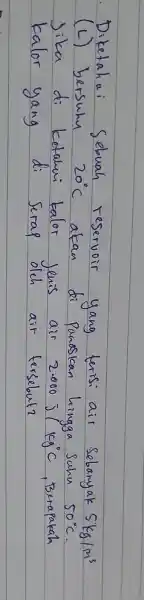 . Diketahui Sebuah reservoir yang terisi air Sebanyak 5 kg/m³
(L) bersuhu 20°C akan di panaskan hingga Suhu 50°C.
Jika di ketahui kalor Jenis air 2.000 J/kg°C, Berapakah
kalor yang di Serap oleh air tersebut?